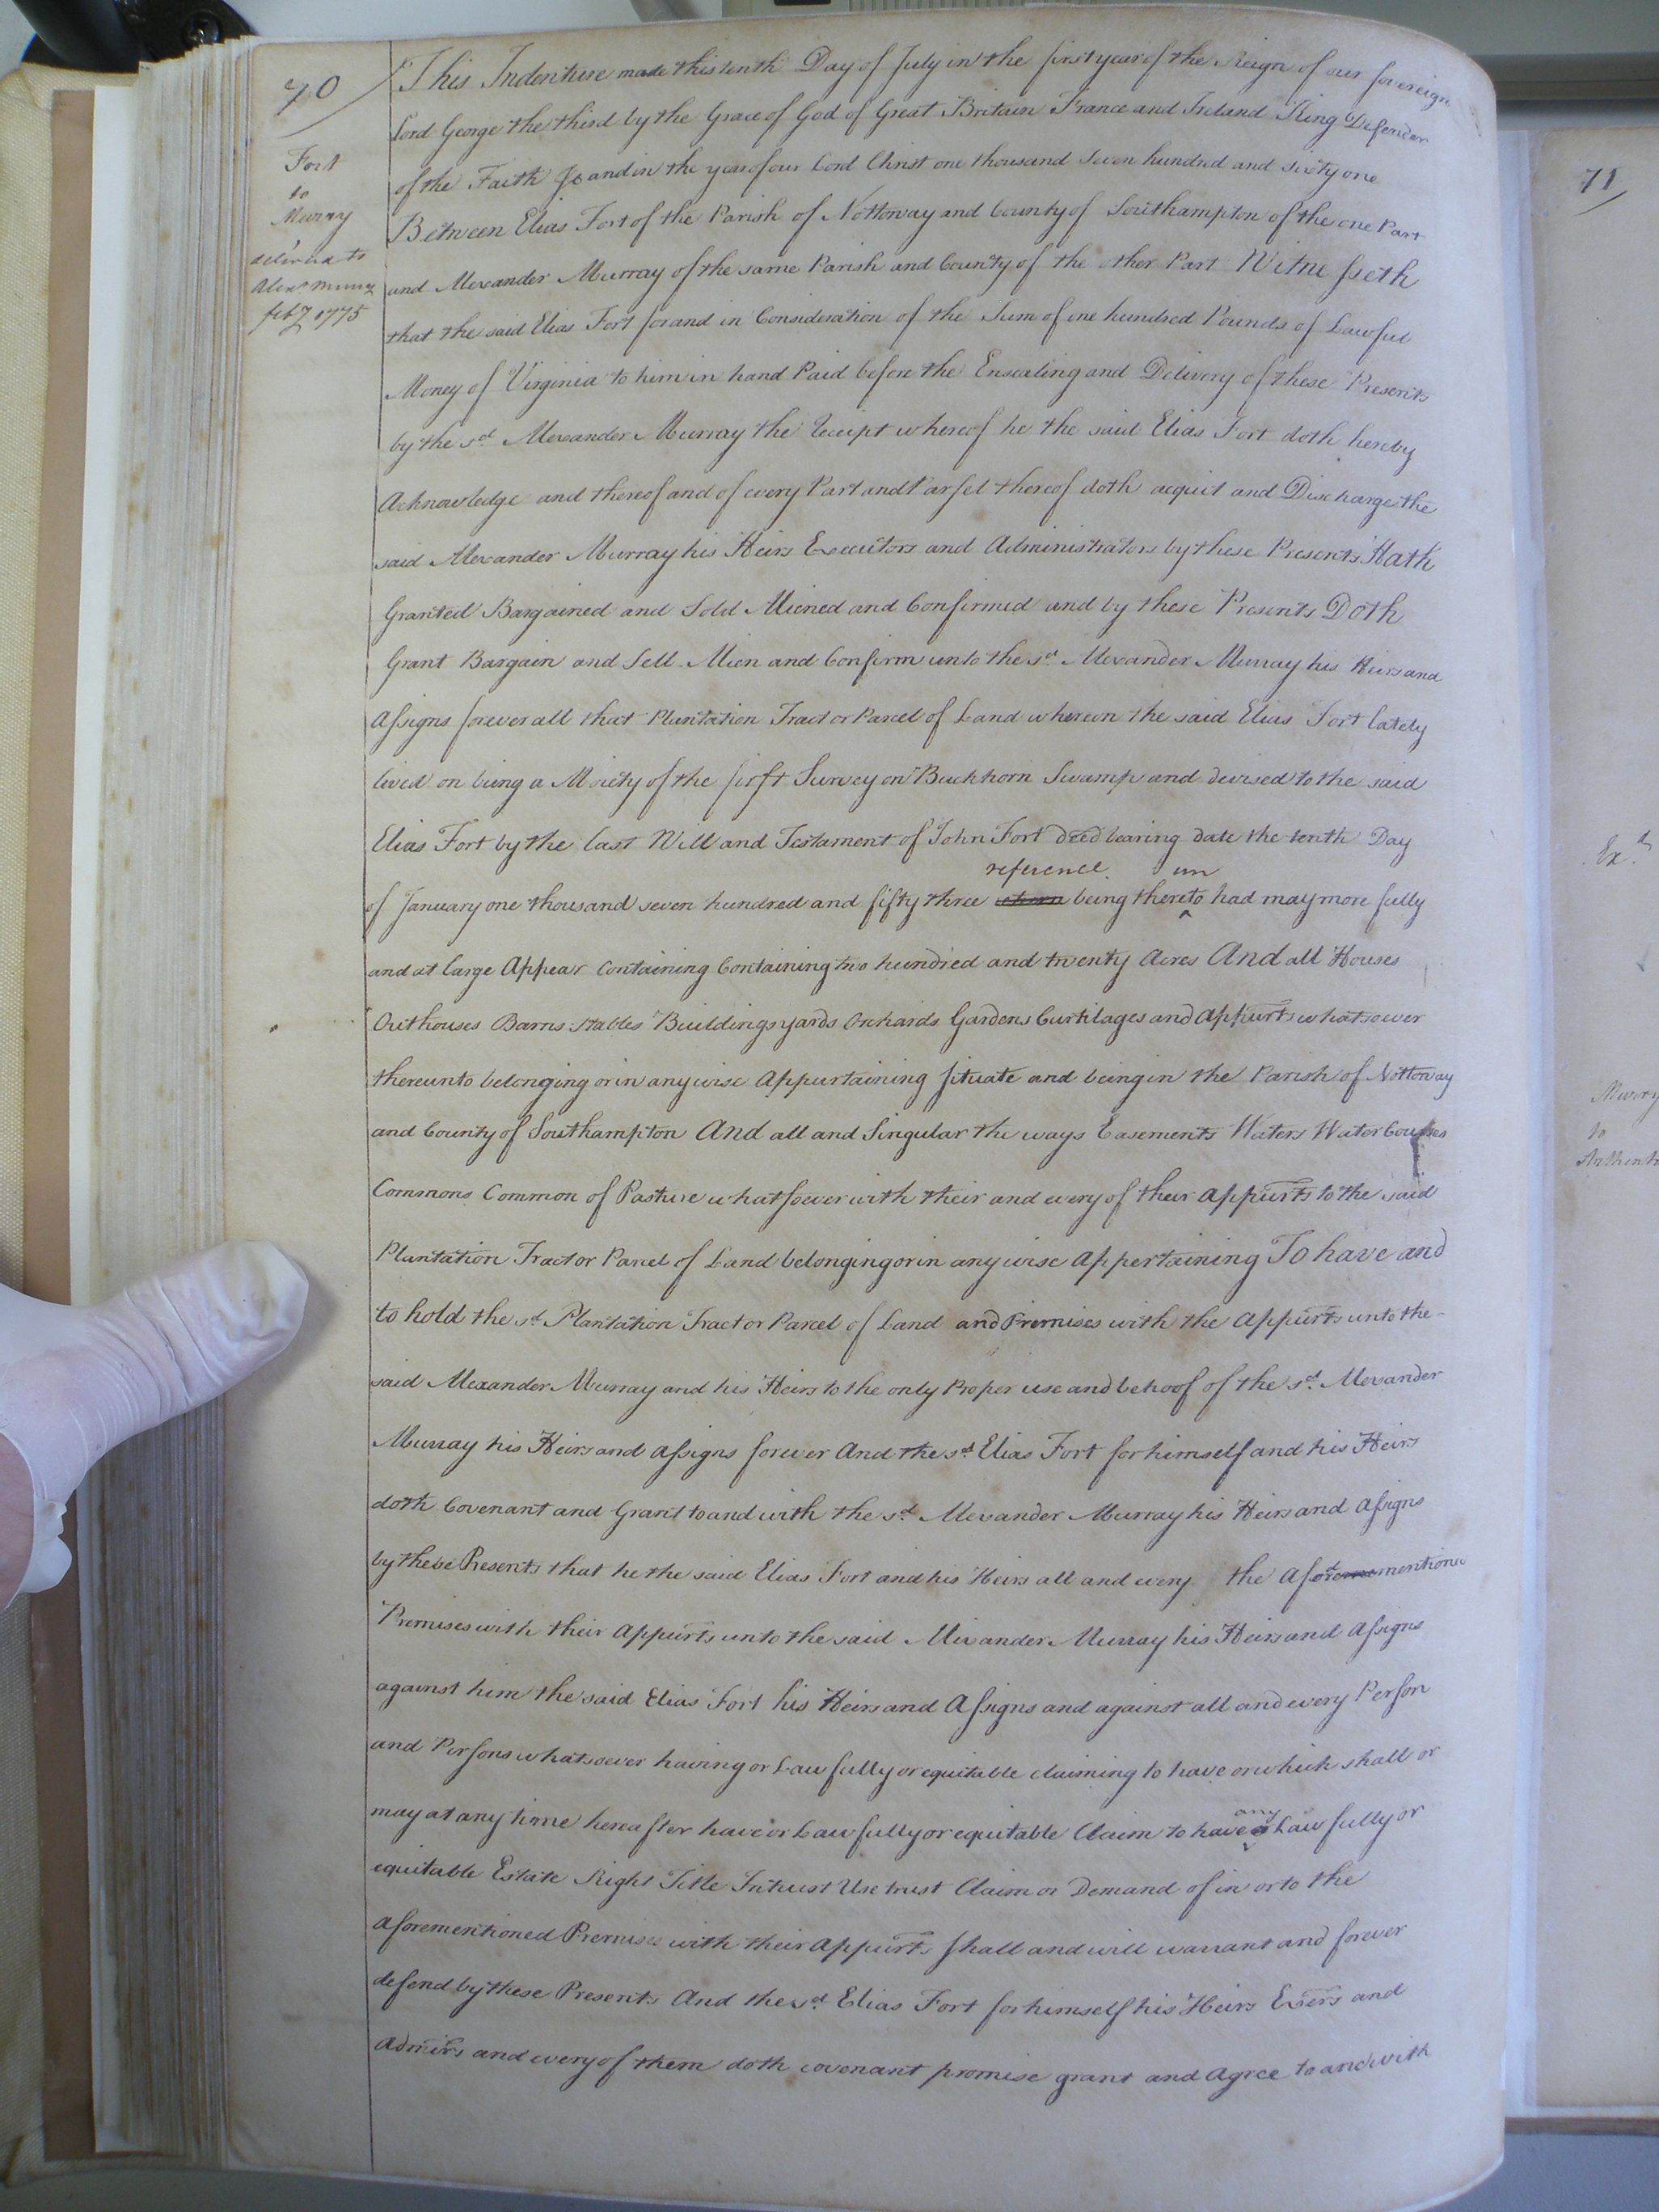 70
Fort
to
Murray
deliver'd to
Alexr Murray
feby 1775
This Indenture made this tenth Day of July in the first year of the Reign of our sovereign
Lord George the third by the Grace of God of Great Britain France and Ireland King Defender
of the Faith &c and in the year of our Lord Christ one thousand seven hundred and sixty one
Between Elias Fort of the Parish of Nottoway and County of Southampton of the one Part
and Alexander Murray of the same Parish and County of the other Part Witnesseth
that the said Elias Fort for and in Consideration of the Sum of one hundred Pounds of Lawful
Money of Virginia to him in hand Paid before the Ensealing and Delivery of these Presents
by the sd Alexander Murray the Receipt whereof he the said Elias Fort doth hereby
Acknowledge and thereof and of every Part and Parsel thereof doth acquit and Discharge the
said Alexander Murray his Heirs Executors and Administrators by these Presents Hath
Granted Bargained and Sold Aliened and Confirmed and by these Presents Doth
Grant Bargain and Sell Alien and Confirm unto the sd Alexander Murray his Heirs and
Assigns forever all that Plantation Tract or Parcel of Land whereon the said Elias Fort lately
lived on being a Moiety of the first Survey on Buckhorn Swamp and devised to the said
Elias Fort by the last Will and Testament of John Fort deed bearing date the tenth Day
reference un
of January one thousand seven hundred and fifty three being thereto had may more fully
and at large Appear Containing Containing two hundred and twenty Acres And all Houses
Outhouses Barns Stables Buildings yards Orchards Gardens Curtilages and Appurts whatsoever
thereunto belonging or in any wise Appurtaining situate and being in the Parish of Nottoway
and County of Southampton And all and Singular the ways Easements Waters Water Courses
Commons Common of Pasture whatsoever with their and every of their Appurts to the said
Plantation Tract or Parcel of Land belonging or in any wise Appertaining To have and
to hold the sd Plantation Tract or Parcel of Land and Premises with the Appurts unto the
said Alexander Murray and his Heirs to the only Proper use and behoof of the sd Alexander
Murray his Heirs and Assigns forever And the sd Elias Fort for himself and his Heirs
doth Covenant and Grant to and with the sd Alexander Murray his Heirs and Assigns
by these Presents that he the said Elias Fort and his Heirs all and every the Aforementioned
Premises with their Appurts unto the said Alexander Murray his Heirs and Assigns
against him the said Elias Fort his Heirs and Assigns and against all and every Person
and Persons whatsoever having or Lawfully or equitable claiming to have or which shall or
any
may at any time hereafter have or Lawfully or equitable Claim to have Lawfully or
equitable Estate Right Title Interest Use trust Claim or Demand of in or to the
aforementioned Premises with their Appurts shall and will warrant and forever
defend by these Presents And the sd Elias Fort for himself his Heirs Exers and
Admirs and every of them doth covenant promise grant and Agree to and with
71
Exd
to